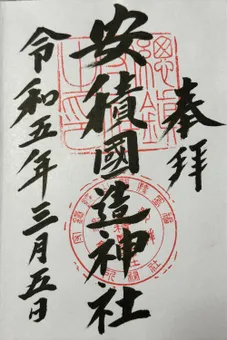 奉拜
安積國造神社
令和五年三月五日